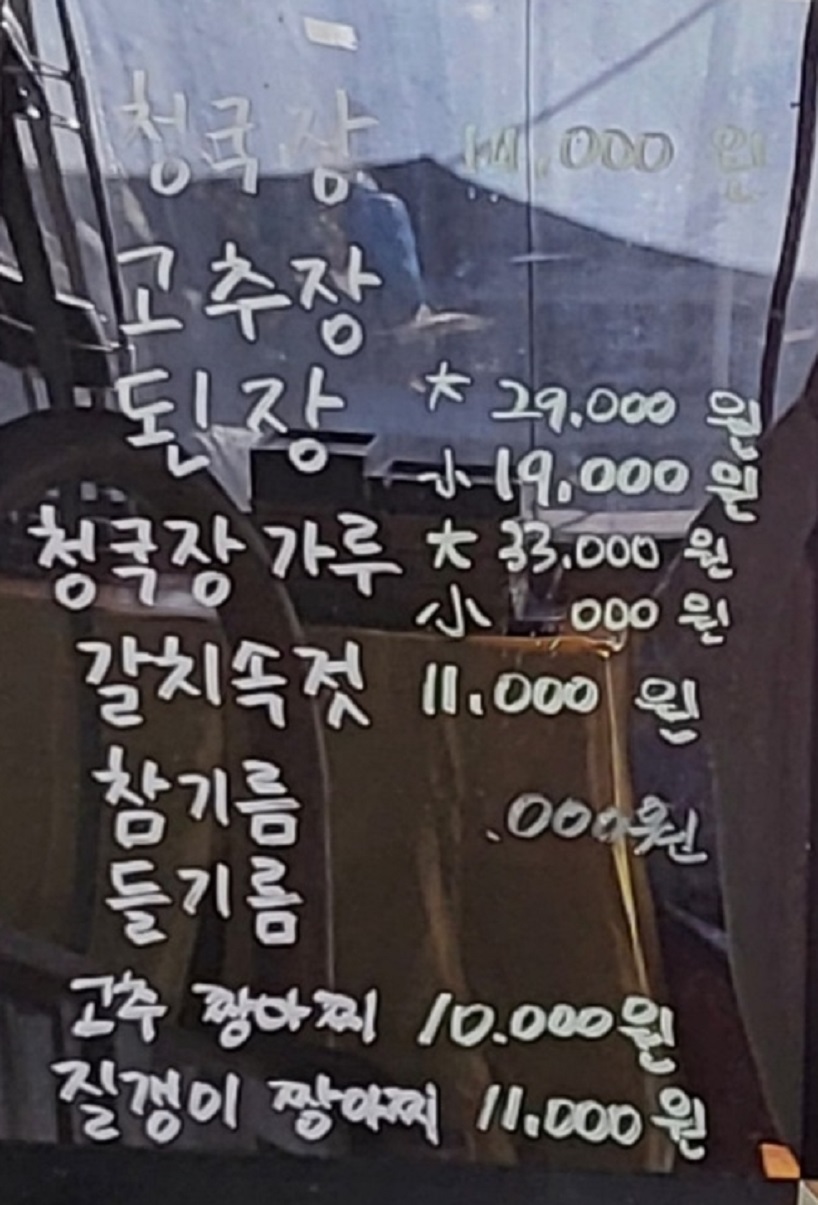 청국장 14,000 원
고추장
된장 大 29,000 원
小 19,000 원
청국장 가루 大 33,000 원
小 000 원
갈치속젓 11.000 원
참기름 .000원
들기름
고추 짱아찌 10.000원
질갱이 짱아찌 11.000원